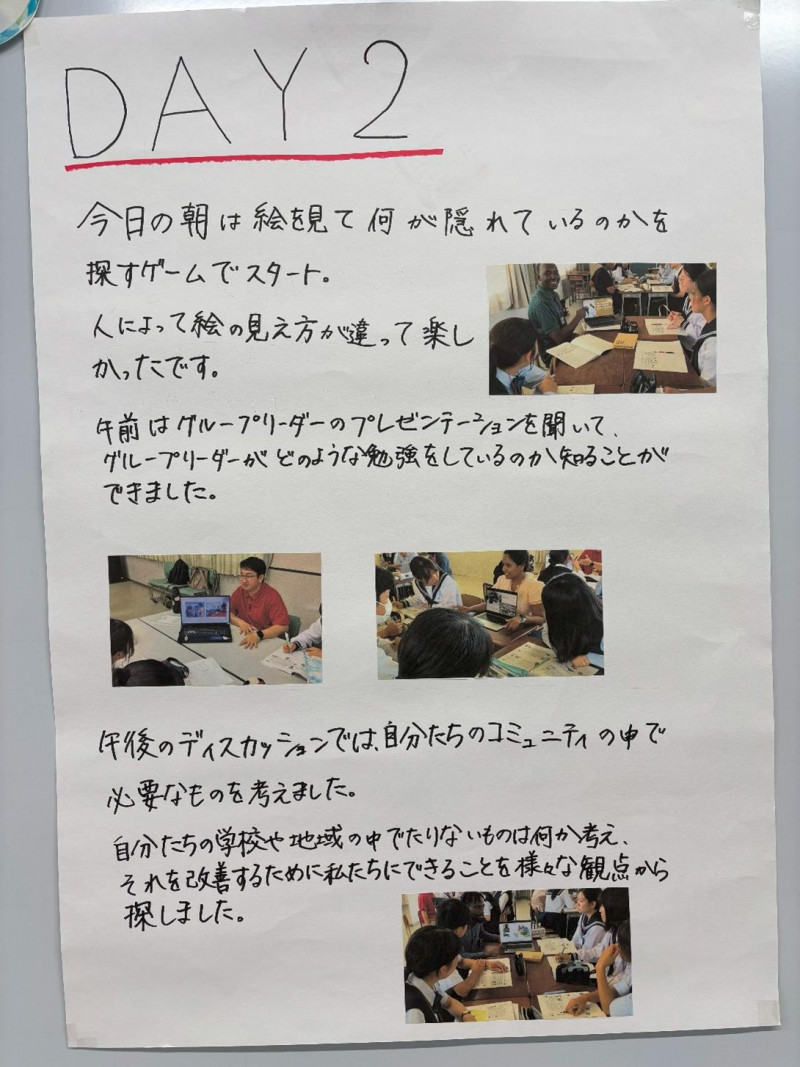 DAY 2
今日の朝は絵を見て何が隠れているのかを
探すゲームでスタート。
人によって絵の見え方が違って楽し
かったです。
午前はグループリーダーのプレゼンテーションを聞いて、
グループリーダーがどのような勉強をしているのか知ることが
できました。
午後のディスカッションでは、自分たちのコミュニティの中で
必要なものを考えました。
自分たちの学校や地域の中でたりないものは何か考え、
それを改善するために私たちにできることを様々な観点から
探しました。